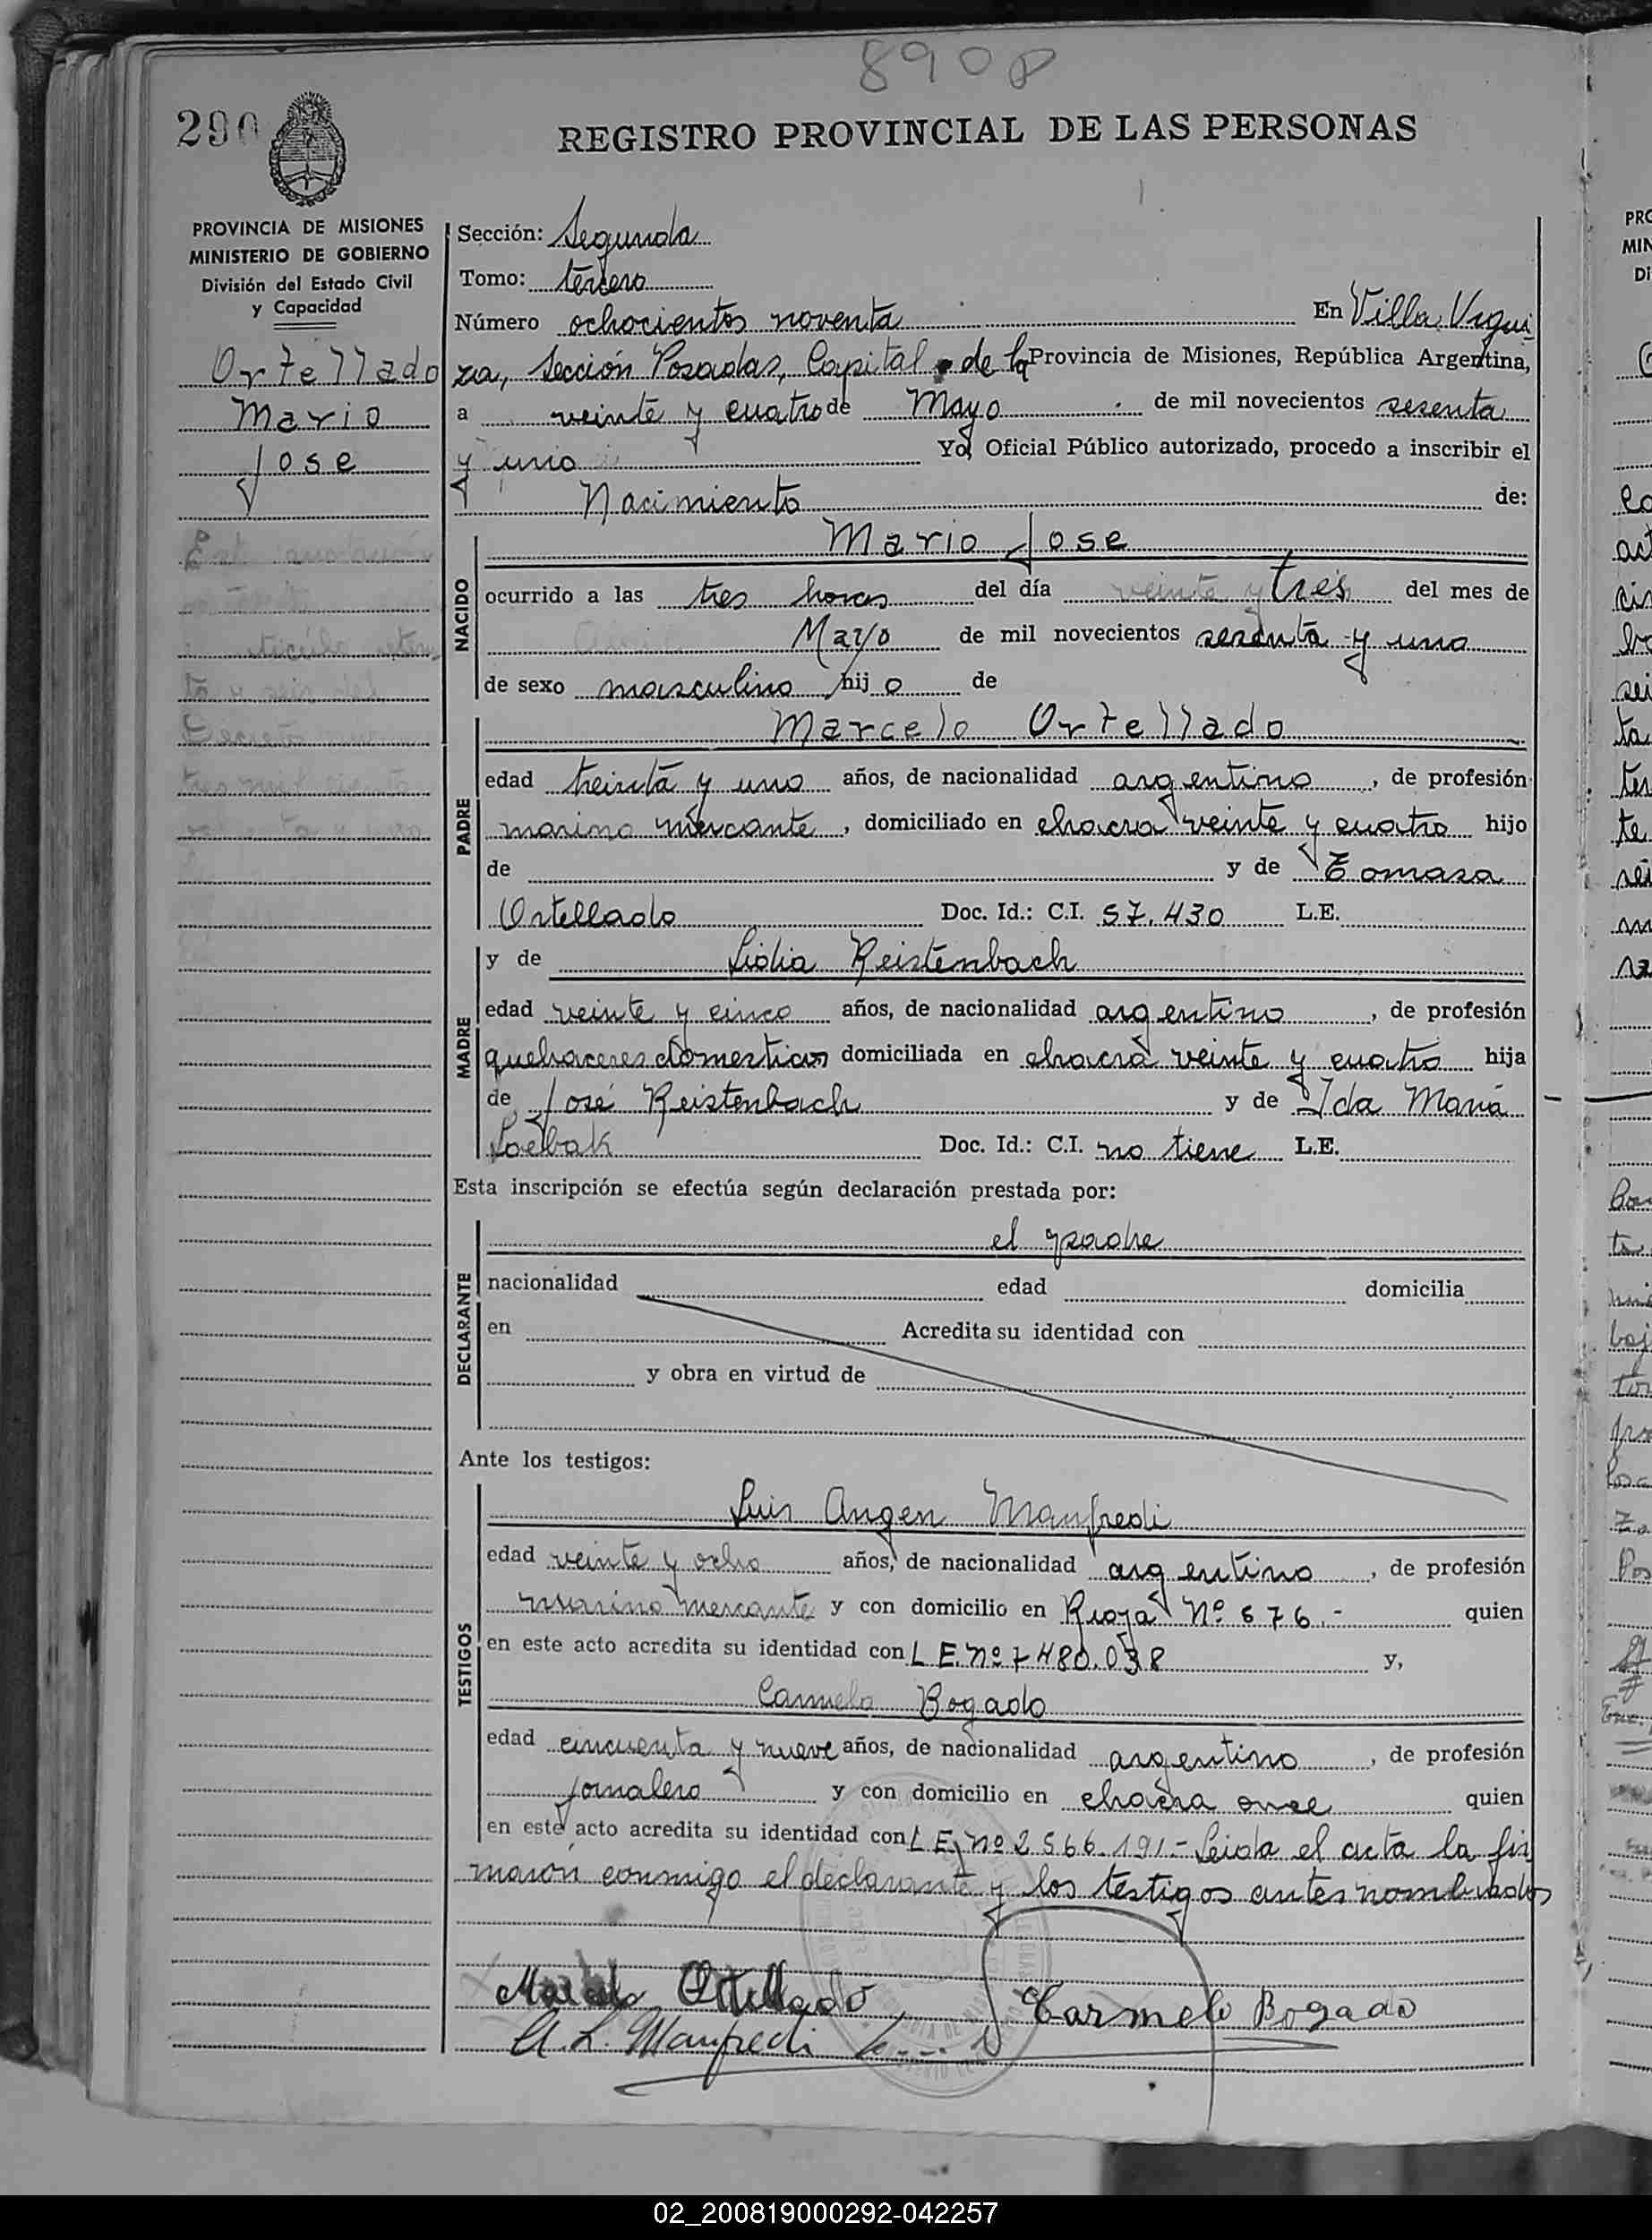 890P
290
REGISTRO PROVINCIAL DE LAS PERSONAS
PROVINCIA DE MISIONES
MINISTERIO DE GOBIERNO
División del Estado Civil
y Capacidad
Ortellado
Mario
Jose
Sección: Segunda
Tomo: tercero
Número ochocientos noventa En Villa Urqui
za, Sección Posadas, Capital de la Provincia de Misiones, República Argentina,
a veinte y cuatro de Mayo de mil novecientos sesenta
y uno Yo, Oficial Público autorizado, procedo a inscribir el
Nacimiento de:
NACIDO
Mario Jose
ocurrido a las tres horas del día veinte y tres del mes de
Mayo de mil novecientos sesenta y uno
de sexo masculino hijo de
PADRE
Marcelo Ortellado
edad treinta y uno años, de nacionalidad argentino, de profesión
marino mercante, domiciliado en chacra veinte y cuatro hijo
de y de Tomasa
Ortellado Doc. Id.: C.I. 57.430 L.E.
MADRE
y de Lidia Reistenbach
edad veinte y cinco años, de nacionalidad argentino, de profesión
quehaceres domesticos domiciliada en chacra veinte y cuatro hija
de José Reistenbach y de Ida Maria
Loebak Doc. Id.: C.I. no tiene L.E.
Esta inscripción se efectúa según declaración prestada por:
DECLARANTE
el padre
nacionalidad edad domicilia
en Acredita su identidad con
y obra en virtud de
Ante los testigos:
TESTIGOS
Luis Angen Manfredi
edad veinte y ocho años, de nacionalidad argentino, de profesión
marino mercante y con domicilio en Rioja Nº 676.- quien
en este acto acredita su identidad con L E. nº 7480.038 y,
Carmelo Bogado
edad cincuenta y nueve años, de nacionalidad argentino, de profesión
jornalero y con domicilio en chacra once quien
en este acto acredita su identidad con L E, nº 2566.191.- Leida el acta la fir
maron conmigo el declarante y los testigos antes nombrados
Marcelo Ortellado
Carmelo Bogado
A. L. Manfredi
02_200819000292-042257